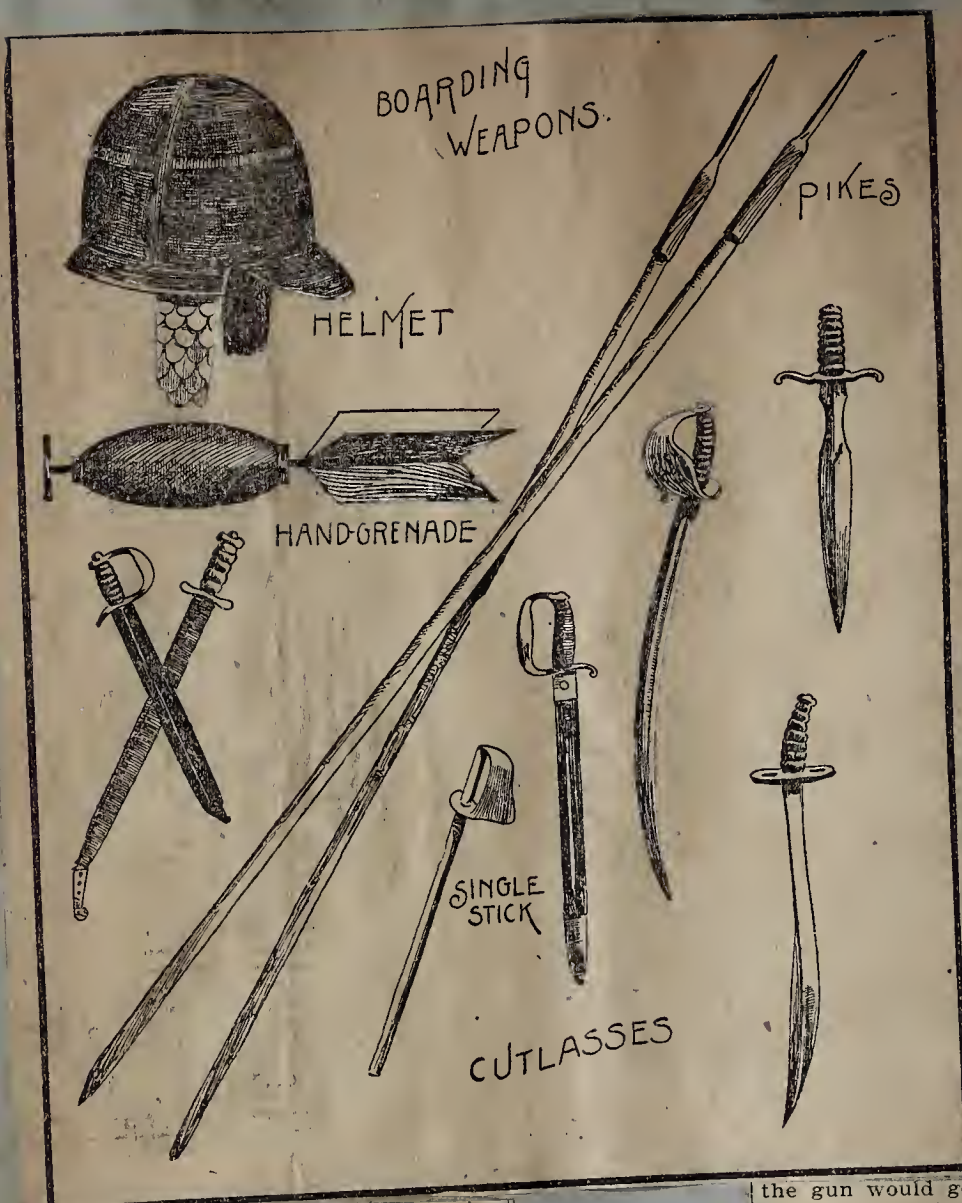 BOARDING
WEAPONS.
PIKES
HELMET
HAND-GRENADE
SINGLE
STICK
CUTLASSES
the gun would g